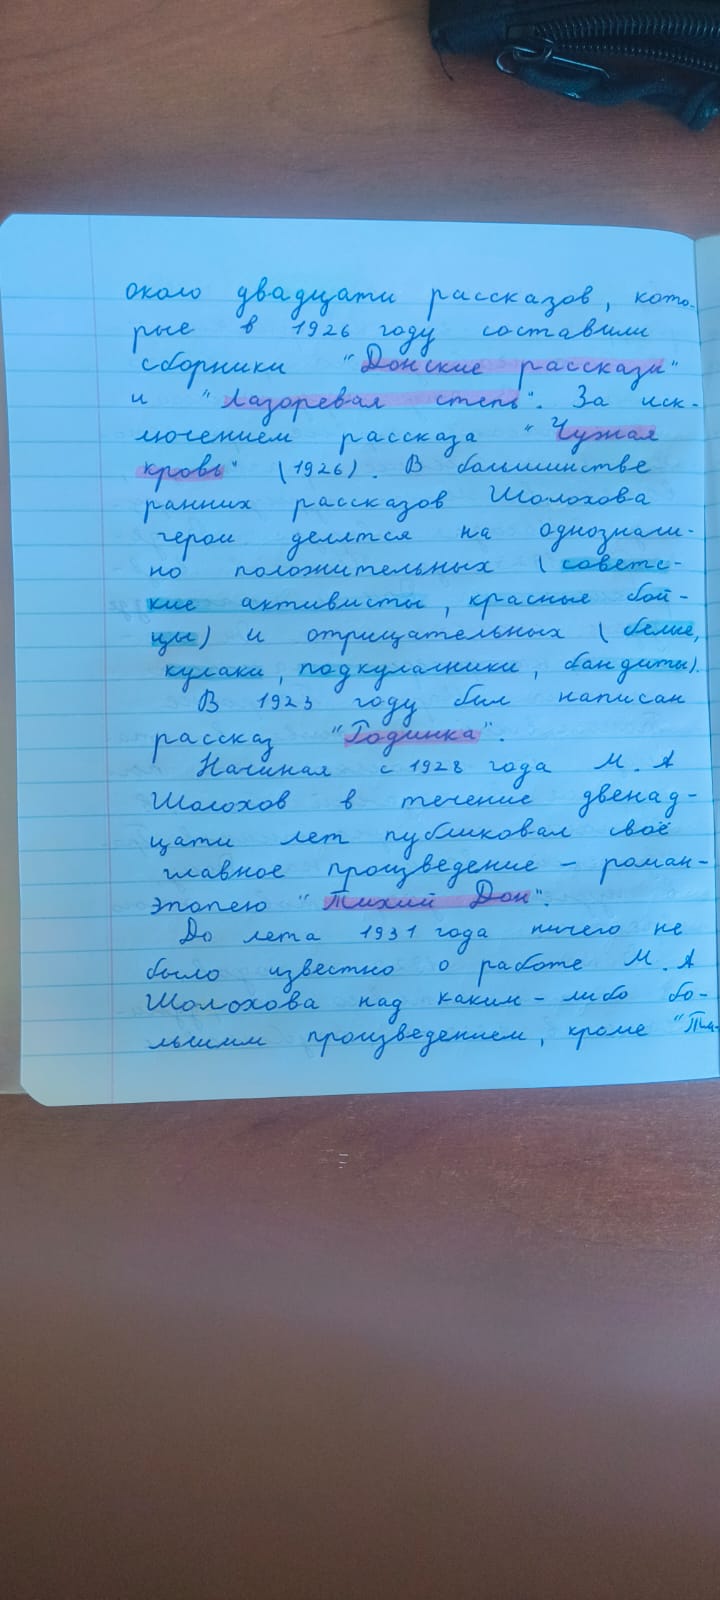 около двадцати рассказов, кото-
рые в 1926 году составили
сборники "Донские рассказы"
и "Лазоревая степь". За иск-
лючением рассказа "Чужая
кровь" (1926). В большинстве
ранних рассказов Шолохова
герои делятся на однознач-
но положительных (советс-
кие активисты, красные бой-
цы) и отрицательных (белые,
кулаки, подкулачники, бандиты).
В 1923 году был написан
рассказ "Родинка".
Начиная с 1928 года М. А
Шолохов в течение двенад-
цати лет публиковал своё
главное произведение - роман-
эпопею "Тихий Дон".
До лета 1931 года ничего не
было известно о работе М. А
Шолохова над каким-либо бо-
льшим произведением, кроме "Ти-